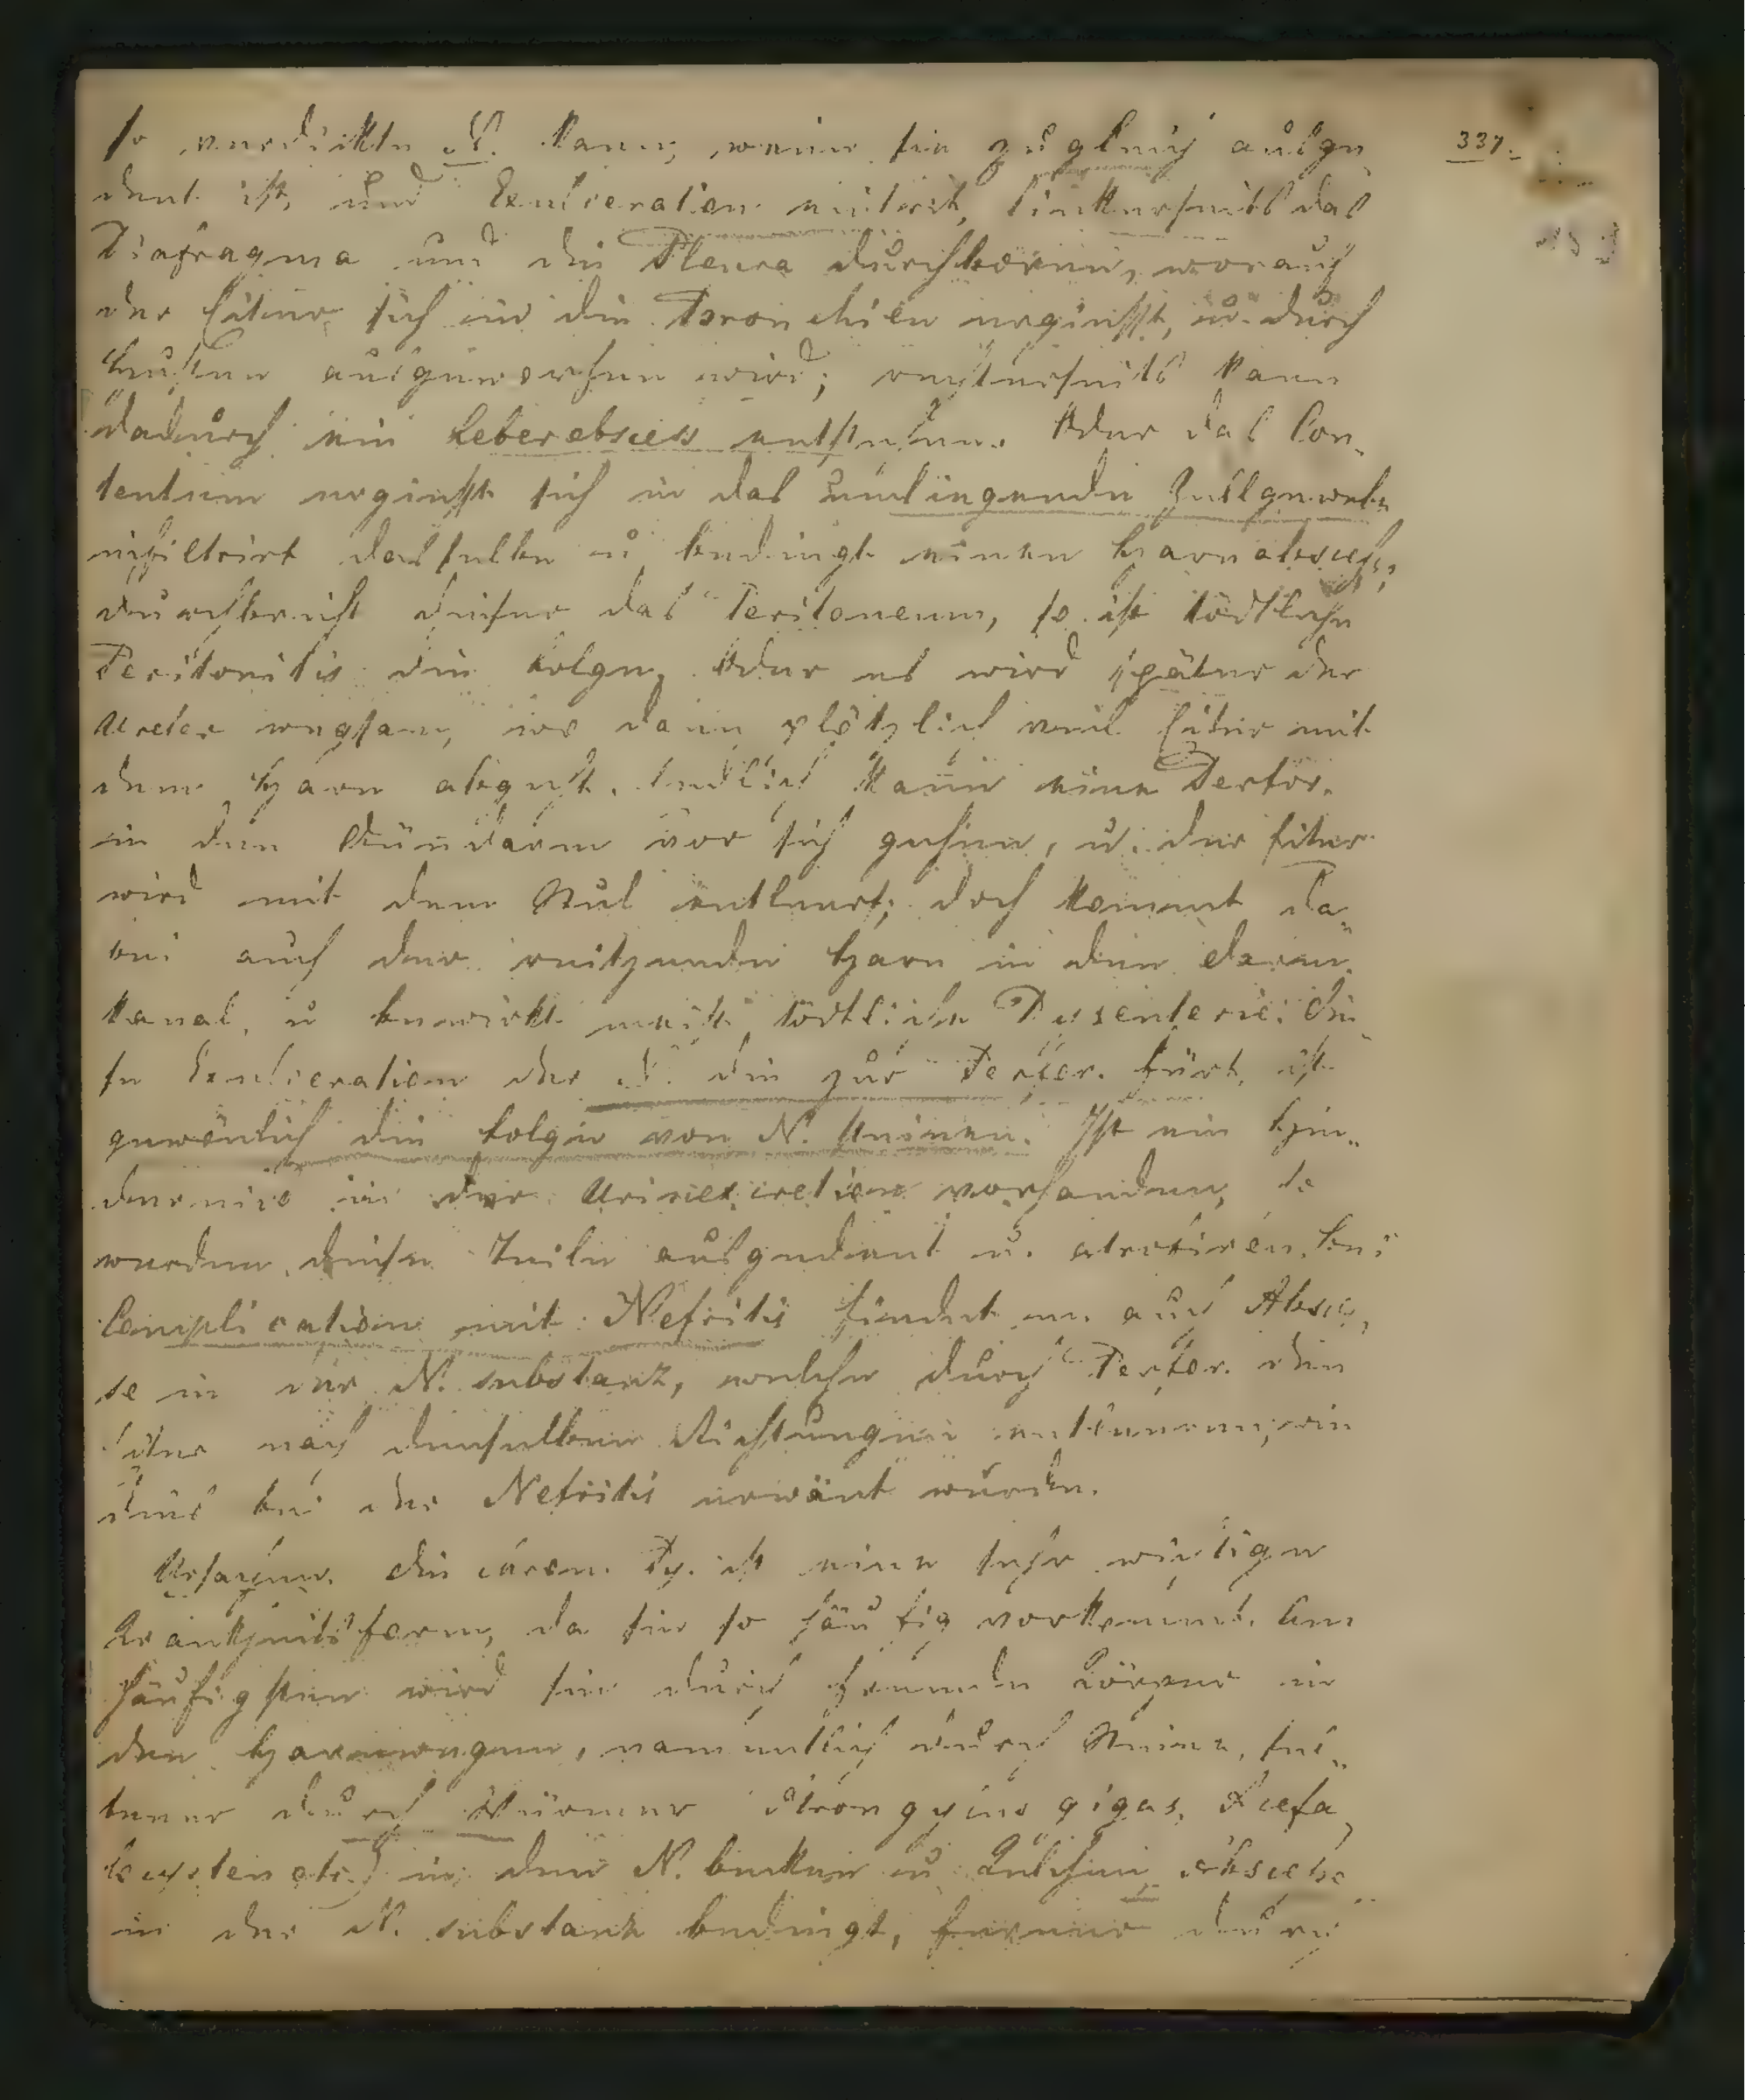 337.
so verdickte N. kann, wenn sie zugleich ausge
dent ist, und Exulceration eintrit, linkerseits das
Diafragma und die Pleura durchboren, worauf
der Eiter sich in die Bronchien ergiesst, u. durch
Husten ausgeworfen wird; rechterseits kann
dadurch ein Leberabscess entstehen. Oder das Con-
tentum ergiesst sich in das umliegende Zellgewebe
infiltrirt dasselbe u bedingt einen Harnabscess;
durchbricht dieser das Peritoneum, so ist tödtliche
Peritonitis die Folge, oder es wird später der
Ureter wegsam, wo dann plötzlich viel Eiter mit
dem Harn abgeht. Endlich kann eine Perfor.
in den Dünndarm vor sich gehen, u. der Eiter
wird mit dem Stul entleert; doch kommt da-
bei auch der reitzende Harn in den Darm
kanal, u bewirkt meist tödtliche Dysenterie. Die
se Exulceration der N. die zur Perfor. fürt, ist
gewönlich die Folge von N. steinen. Ist ein Hin-
dernis in der Urinexcretion vorhanden, so
werden diese Teile ausgedent u. atrofiren. Bei
Complication mit Nefritis findet m. auch Absces-
se in der N. substanz, welche durch Perfor. den
Eiter nach denselben Richtungen entleeren, wie
dies bei der Nefritis erwänt wurde.
Ursachen. Die chron. Py. ist eine sehr wichtige
Krankheitsform, da sie so häufig vorkommt. Am
häufigsten wird sie durch fremde Körper in
den Harnwegen, namentlich durch Steine, sel-
tener durch Würmer Strongylus gigas, Acefa
locysten etc) in den N. becken u Kelchen Abscesse
in der N. substanz bedingt, ferner durch